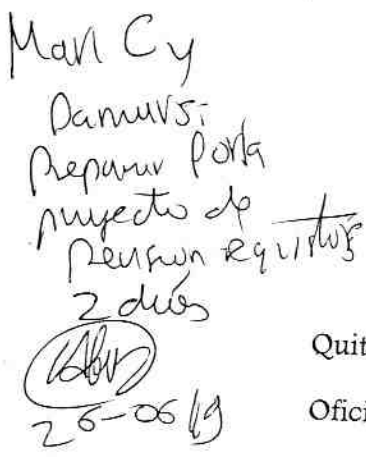 Mari Cy
Preparar Porta
proyecto de
Pension requisitos
2 días
26-06 19
Quit
Ofici